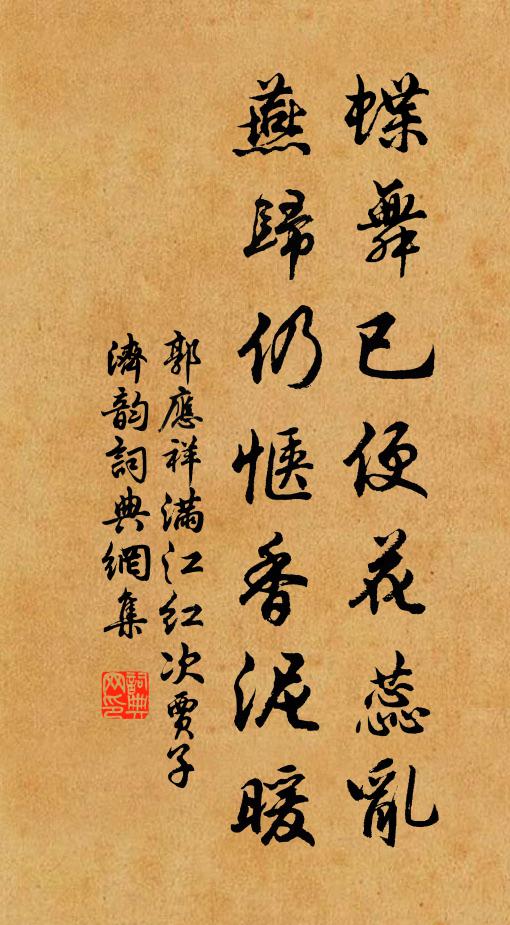 蝶舞已便花蕊亂
燕歸仍愜香泥暖
郭應祥滿江紅次賈子
濟韵詞典網集
詞典網印